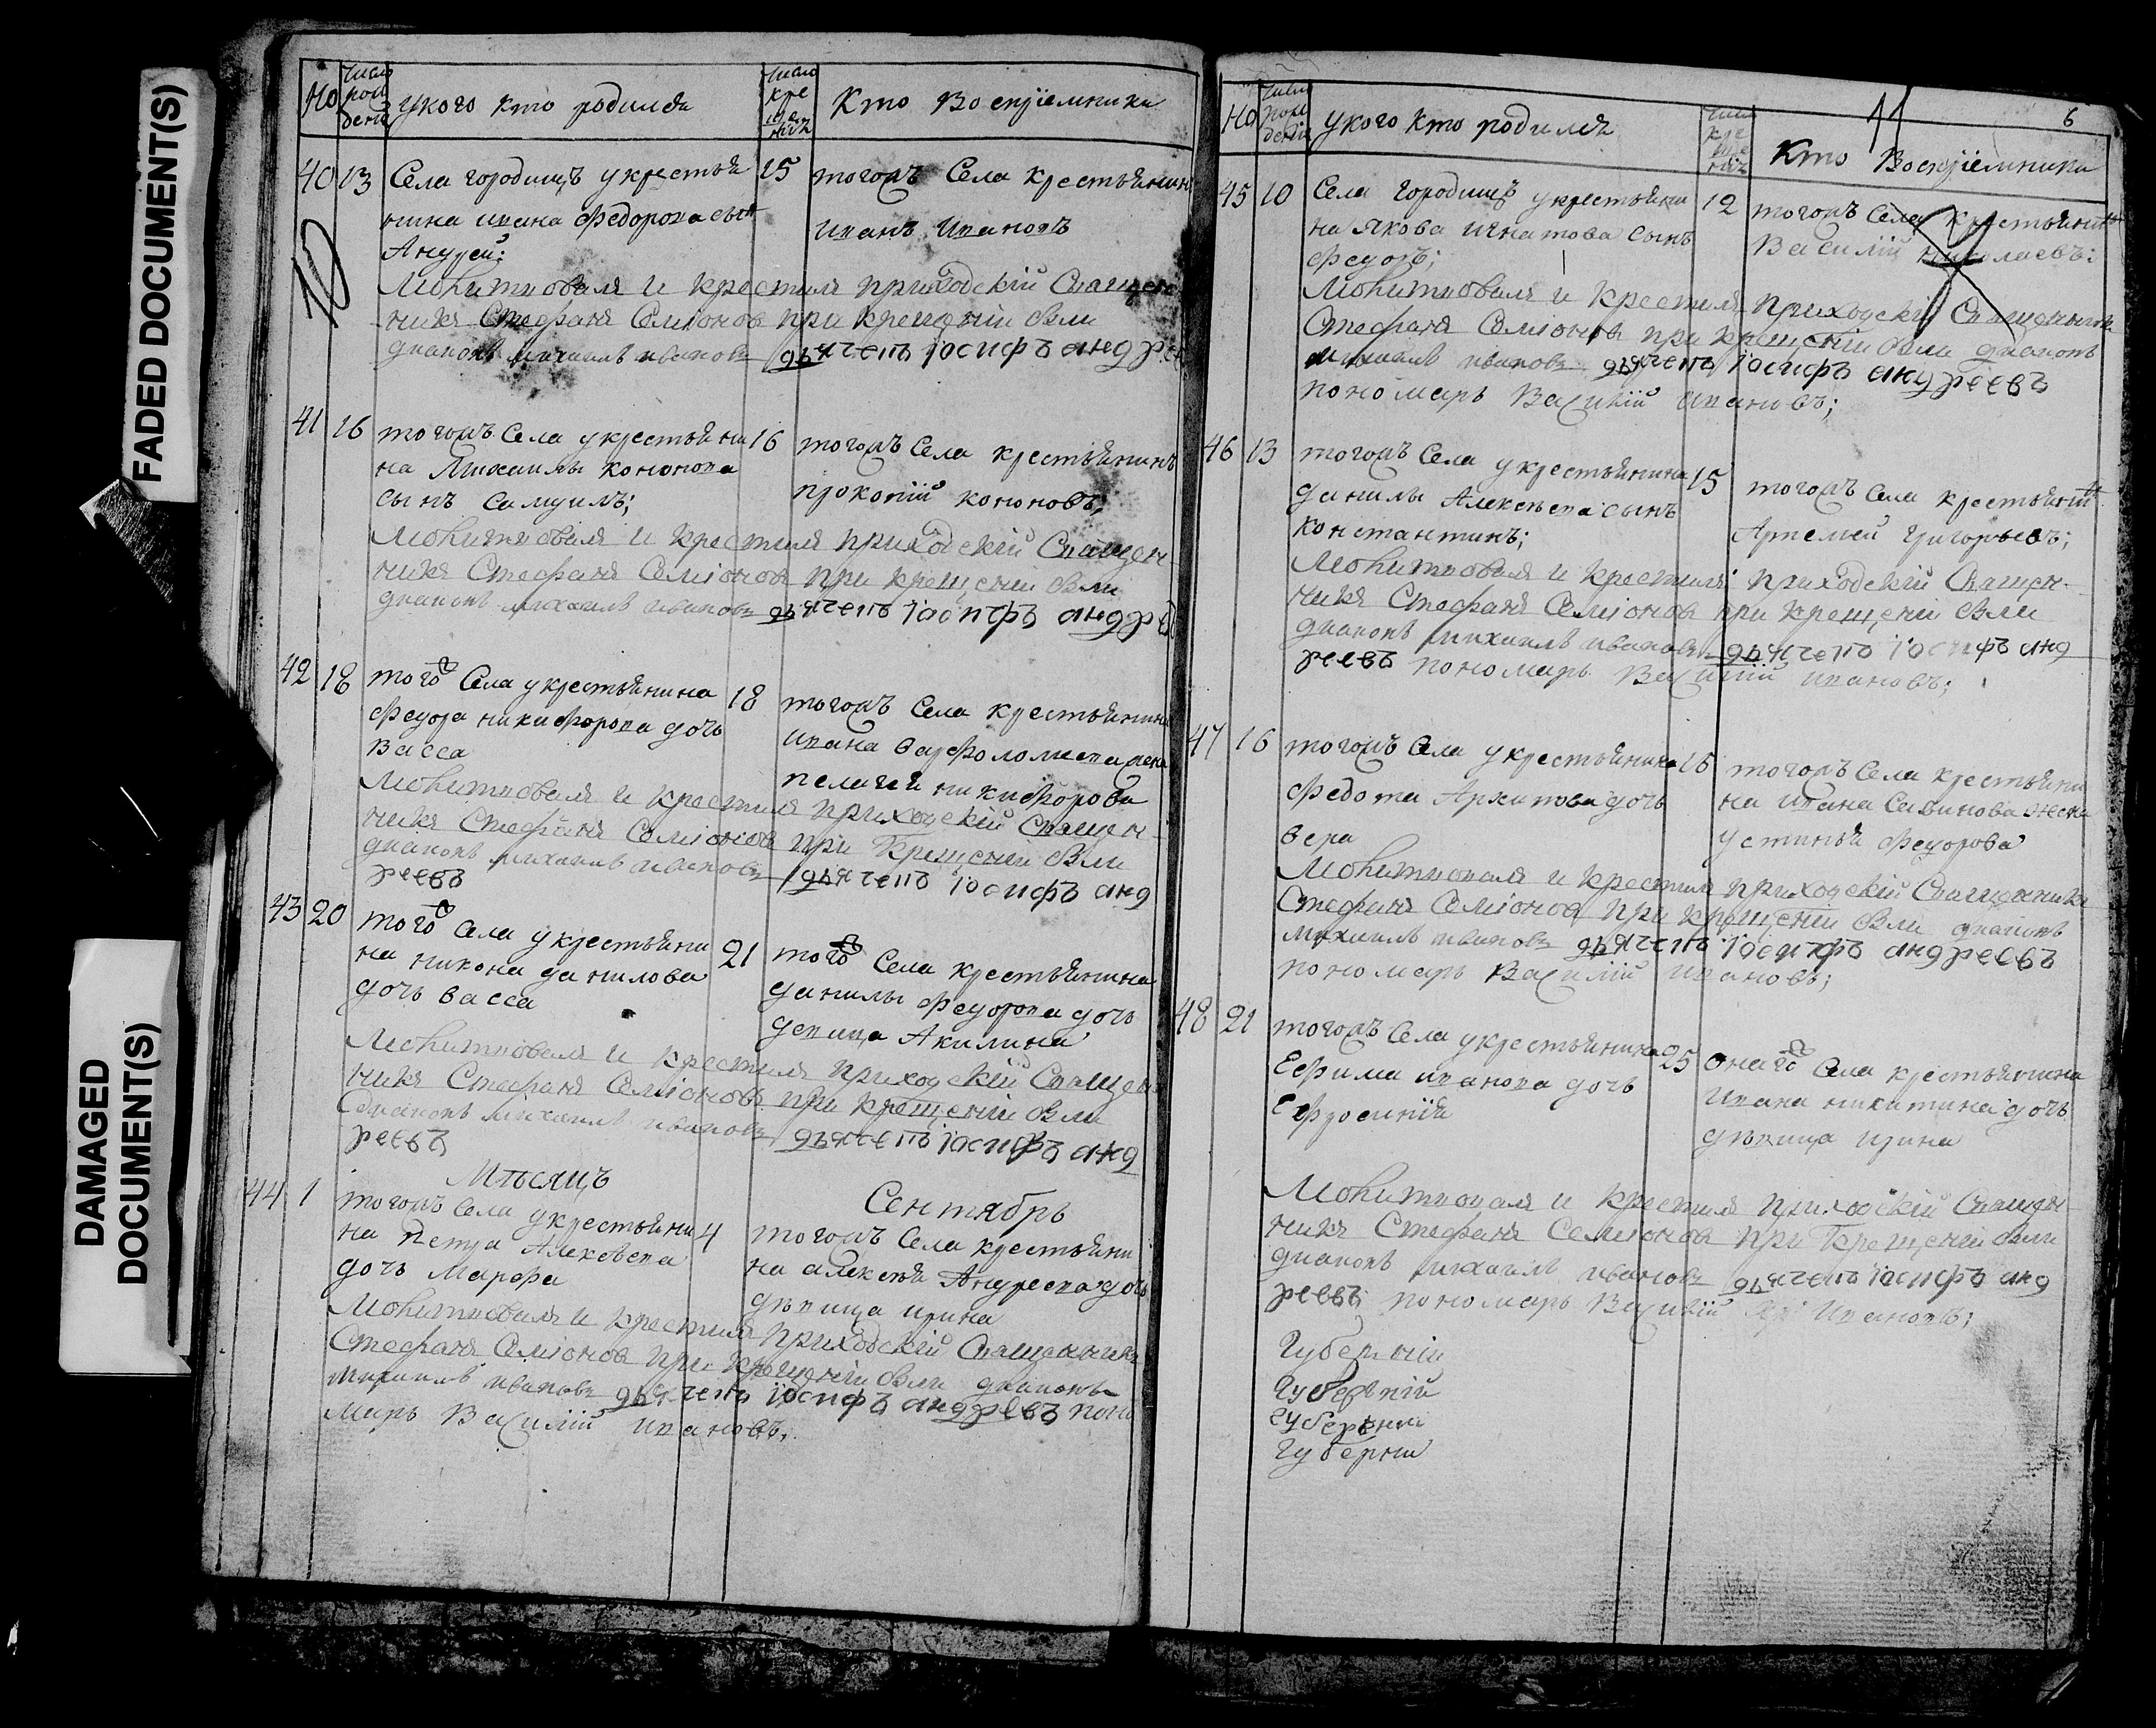 FADED DOCUMENT(S)
DAMAGED
DOCUMENT(S)
Но
Число рож дения
у кого кто родился
Число кре ще ния
Кто Воспріемники
40 13 Села городищъ у крестья
нина ивана Федорова сынъ
Андрей;
15 тогожъ Села крестьянинъ
иванъ Ивановъ
10
Молитвовалъ и Крестилъ приходскій Священ
никъ Стефанъ Семіоновъ при крещеніи были
диаконъ михаилъ ивановъ дьячекъ іосифъ андрее
41 16 тогожъ Села у крестьяни
на Михаилы кононова
сынъ Самуилъ;
16 тогожъ Села крестьянинъ
прокопій кононовъ;
Молитвовалъ и Крестилъ приходскій Священ
никъ Стефанъ Семіоновъ при крещеніи были
диаконъ михаилъ ивановъ дьячекъ іосифъ андрее
42 18 того Села у крестьянина
Федора никифорова дочь
Васса
18 тогожъ Села крестьянина
ивана варфоломеева жена
пелагея никифорова
Молитвовалъ и крестилъ приходскій Священ
никъ Стефанъ Семіоновъ при Крещеніи были
диаконъ михаилъ ивановъ дьячекъ іосифъ анд
реевъ
43 20 того Села у крестьяни
на никона данилова
дочь васса
21 того Села крестьянина
данилы Федорова дочь
девица Акилина
Молитвовалъ и крестилъ приходскій Священ
никъ Стефанъ Семіоновъ при крещеніи были
диаконъ михаилъ ивановъ дьячекъ іосифъ анд
реевъ
Мѣсяцъ Сентябрь
44 1 тогожъ Села у крестьяни
на Петра Алексеева
дочь Марфа
4 тогожъ Села крестьяни
на алексея Андреева дочь
дѣвица ирина
Молитвовалъ и крестилъ приходскій Священникъ
Стефанъ Семіоновъ при крещеніи были диаконъ
михаилъ ивановъ дьячекъ іосифъ андреевъ поно
марь Василій ивановъ;
11 6
Но
Число рож дения
у кого кто родился
Число кре ще ния
Кто Воспріемники
45 10 Села городищъ у крестьяни
на Якова игнатова сынъ
Федоръ;
12 тогожъ Села крестьянинъ
Василій николаевъ;
Молитвовалъ и Крестилъ приходскій Священникъ
Стефанъ Семіоновъ при крещеніи были диаконъ
михаилъ ивановъ дьячекъ іосифъ андреевъ
пономарь Василій ивановъ;
46 13 тогожъ Села у крестьянина
данилы Алексеева сынъ
константинъ;
15 тогожъ Села крестьянинъ
Артемей Григорьевъ;
Молитвовалъ и Крестилъ приходскій Священ
никъ Стефанъ Семіоновъ при крещеніи были
диаконъ михаилъ ивановъ дьячекъ іосифъ анд
реевъ пономарь Василій ивановъ;
47 16 тогожъ Села у крестьянина
Федота Архипова дочь
вера
16 тогожъ Села крестьяни
на ивана Савинова жена
устинья Федорова
Молитвовалъ и Крестилъ приходскій Священникъ
Стефанъ Семіоновъ при крещеніи были диаконъ
михаилъ ивановъ дьячекъ іосифъ андреевъ
пономарь Василій ивановъ;
48 21 тогожъ Села у крестьянина
Ефима иванова дочь
Ефросиния
25 онаго Села крестьянина
ивана никитина дочь
дѣвица ирина
Молитвовалъ и Крестилъ приходскій Священ
никъ Стефанъ Семіоновъ при Крещеніи были
диаконъ михаилъ ивановъ дьячекъ іосифъ анд
реевъ пономарь Василій Ивановъ;
Губерніи
Губерніи
губерніи
Губерни